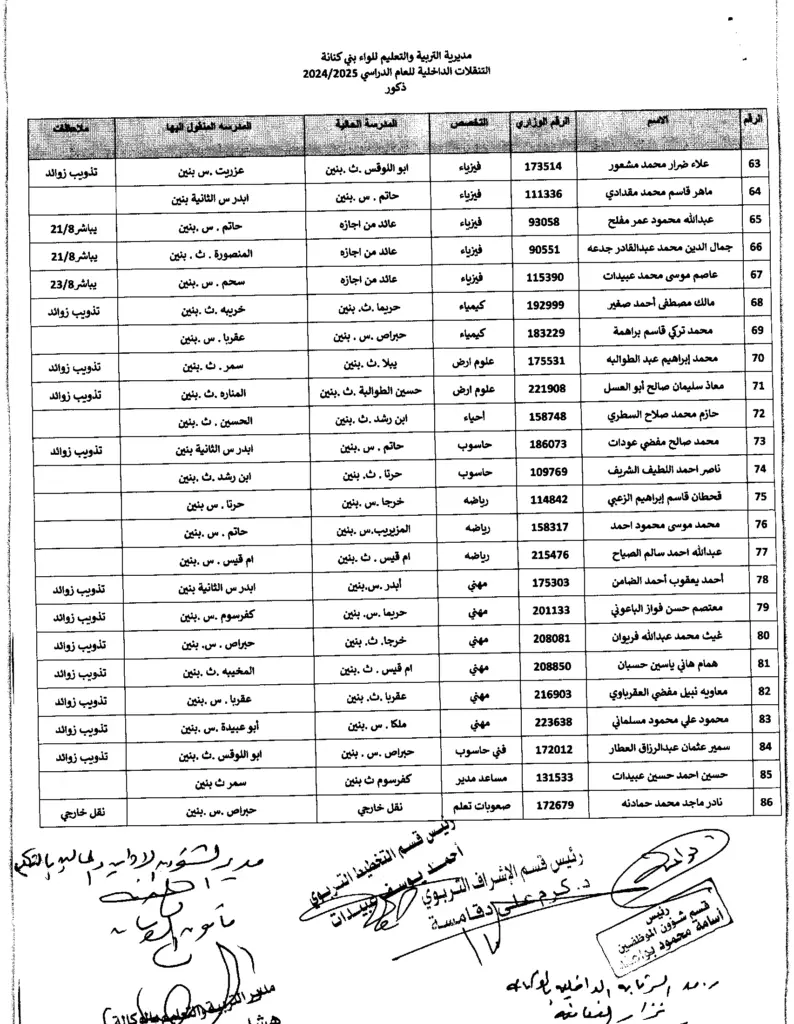 مديرية التربية والتعليم للواء بني كنانة
التنقلات الداخلية للعام الدراسي 2024/2025
ذكور
الرقم الاسم الرقم الوزاري التخصص المدرسة الحالية المدرسه المنقول اليها ملاحظات
63 علاء ضرار محمد مشعور 173514 فيزياء ابو اللوقس .ث .بنين عزريت .س بنين تذويب زوائد
64 ماهر قاسم محمد مقدادي 111336 فيزياء حاتم . س .بنين ابدر س الثانية بنين
65 عبدالله محمود عمر مفلح 93058 فيزياء عائد من اجازه حاتم . س .بنين يباشر21/8
66 جمال الدين محمد عبدالقادر جدعه 90551 فيزياء عائد من اجازه المنصورة . ث . بنين يباشر21/8
67 عاصم موسى محمد عبيدات 115390 فيزياء عائد من اجازه سحم . س .بنين يباشر23/8
68 مالك مصطفى أحمد صغير 192999 كيمياء حريما .ث. بنين خريبه .ث .بنين تذويب زوائد
69 محمد تركي قاسم براهمة 183229 كيمياء حبراص .س . بنين عقربا . س .بنين
70 محمد إبراهيم عبد الطوالبه 175531 علوم ارض يبلا .ث .بنين سمر . ث .بنين تذويب زوائد
71 معاذ سليمان صالح أبو العسل 221908 علوم ارض حسين الطوالبة .ث .بنين المناره .ث .بنين تذويب زوائد
72 حازم محمد صلاح السطري 158748 أحياء ابن رشد .ث .بنين الحسين . ث .بنين
73 محمد صالح مفضي عودات 186073 حاسوب حاتم . س .بنين ابدر س الثانية بنين تذويب زوائد
74 ناصر احمد اللطيف الشريف 109769 حاسوب حرتا . ث. بنين ابن رشد .ث .بنين
75 قحطان قاسم إبراهيم الزعبي 114842 رياضه خرجا .س .بنين حرتا . س بنين
76 محمد موسى محمود احمد 158317 رياضه المزيريب.س .بنين حاتم . س .بنين
77 عبدالله احمد سالم الصياح 215476 رياضه ام قيس . ث .بنين ام قيس . س .بنين
78 أحمد يعقوب أحمد الضامن 175303 مهني أبدر .س.بنين ابدر س الثانية بنين تذويب زوائد
79 معتصم حسن فواز الباعوني 201133 مهني حريما .س. بنين كفرسوم .س .بنين تذويب زوائد
80 غيث محمد عبدالله فريوان 208081 مهني خرجا. ث .بنين حبراص . س. بنين تذويب زوائد
81 همام هاني ياسين حسبان 208850 مهني ام قيس . ث .بنين المخيبه .ث .بنين تذويب زوائد
82 معاويه نبيل مفضي العقرباوي 216903 مهني عقربا .ث. بنين عقربا . س .بنين تذويب زوائد
83 محمود علي محمود مسلماني 223638 مهني ملكا . س .بنين أبو عبيدة .س .بنين تذويب زوائد
84 سمير عثمان عبدالرزاق العطار 172012 فني حاسوب حبراص .س . بنين ابو اللوقس .ث .بنين تذويب زوائد
85 حسين احمد حسين عبيدات 131533 مساعد مدير كفرسوم ث بنين سمر ث بنين
86 نادر ماجد محمد حمادنه 172679 صعوبات تعلم نقل خارجي حبراص .س .بنين نقل خارجي
رئيس قسم التخطيط التربوي
أحمد يوسف عبيدات
رئيس قسم الإشراف التربوي
د. كرم علي دقامسة
رئيس
قسم شؤون الموظفين
أسامة محمود
مدير الشؤون الادارية والمالية بالتكليف
ر. مد الرقابة الداخلية بالوكالة
مدير التربية والتعليم بالوكالة